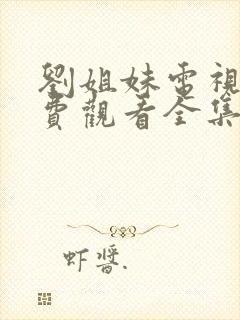 劉姐妹電視
費觀看全集
虾醬.